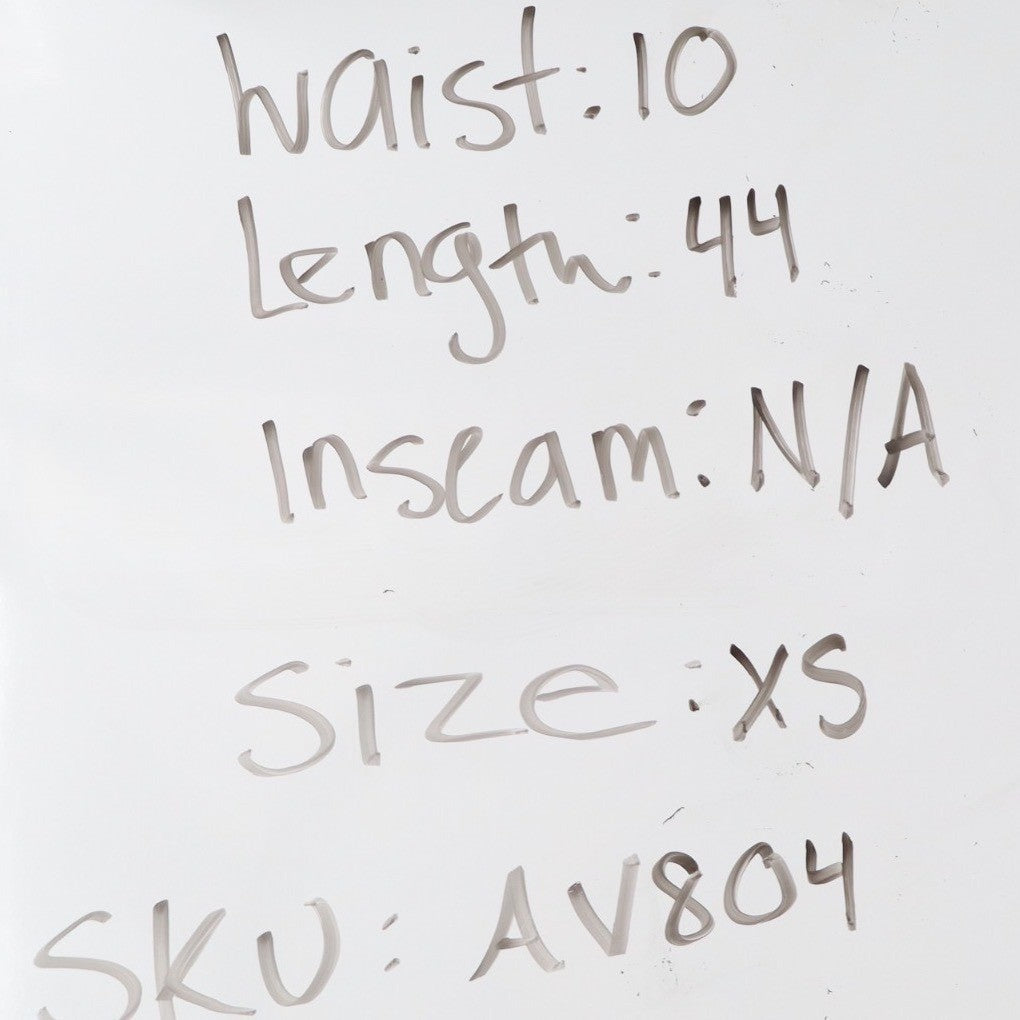 Waist: 10
Length: 44
Inseam: N/A
Size: XS
SKU: AV804